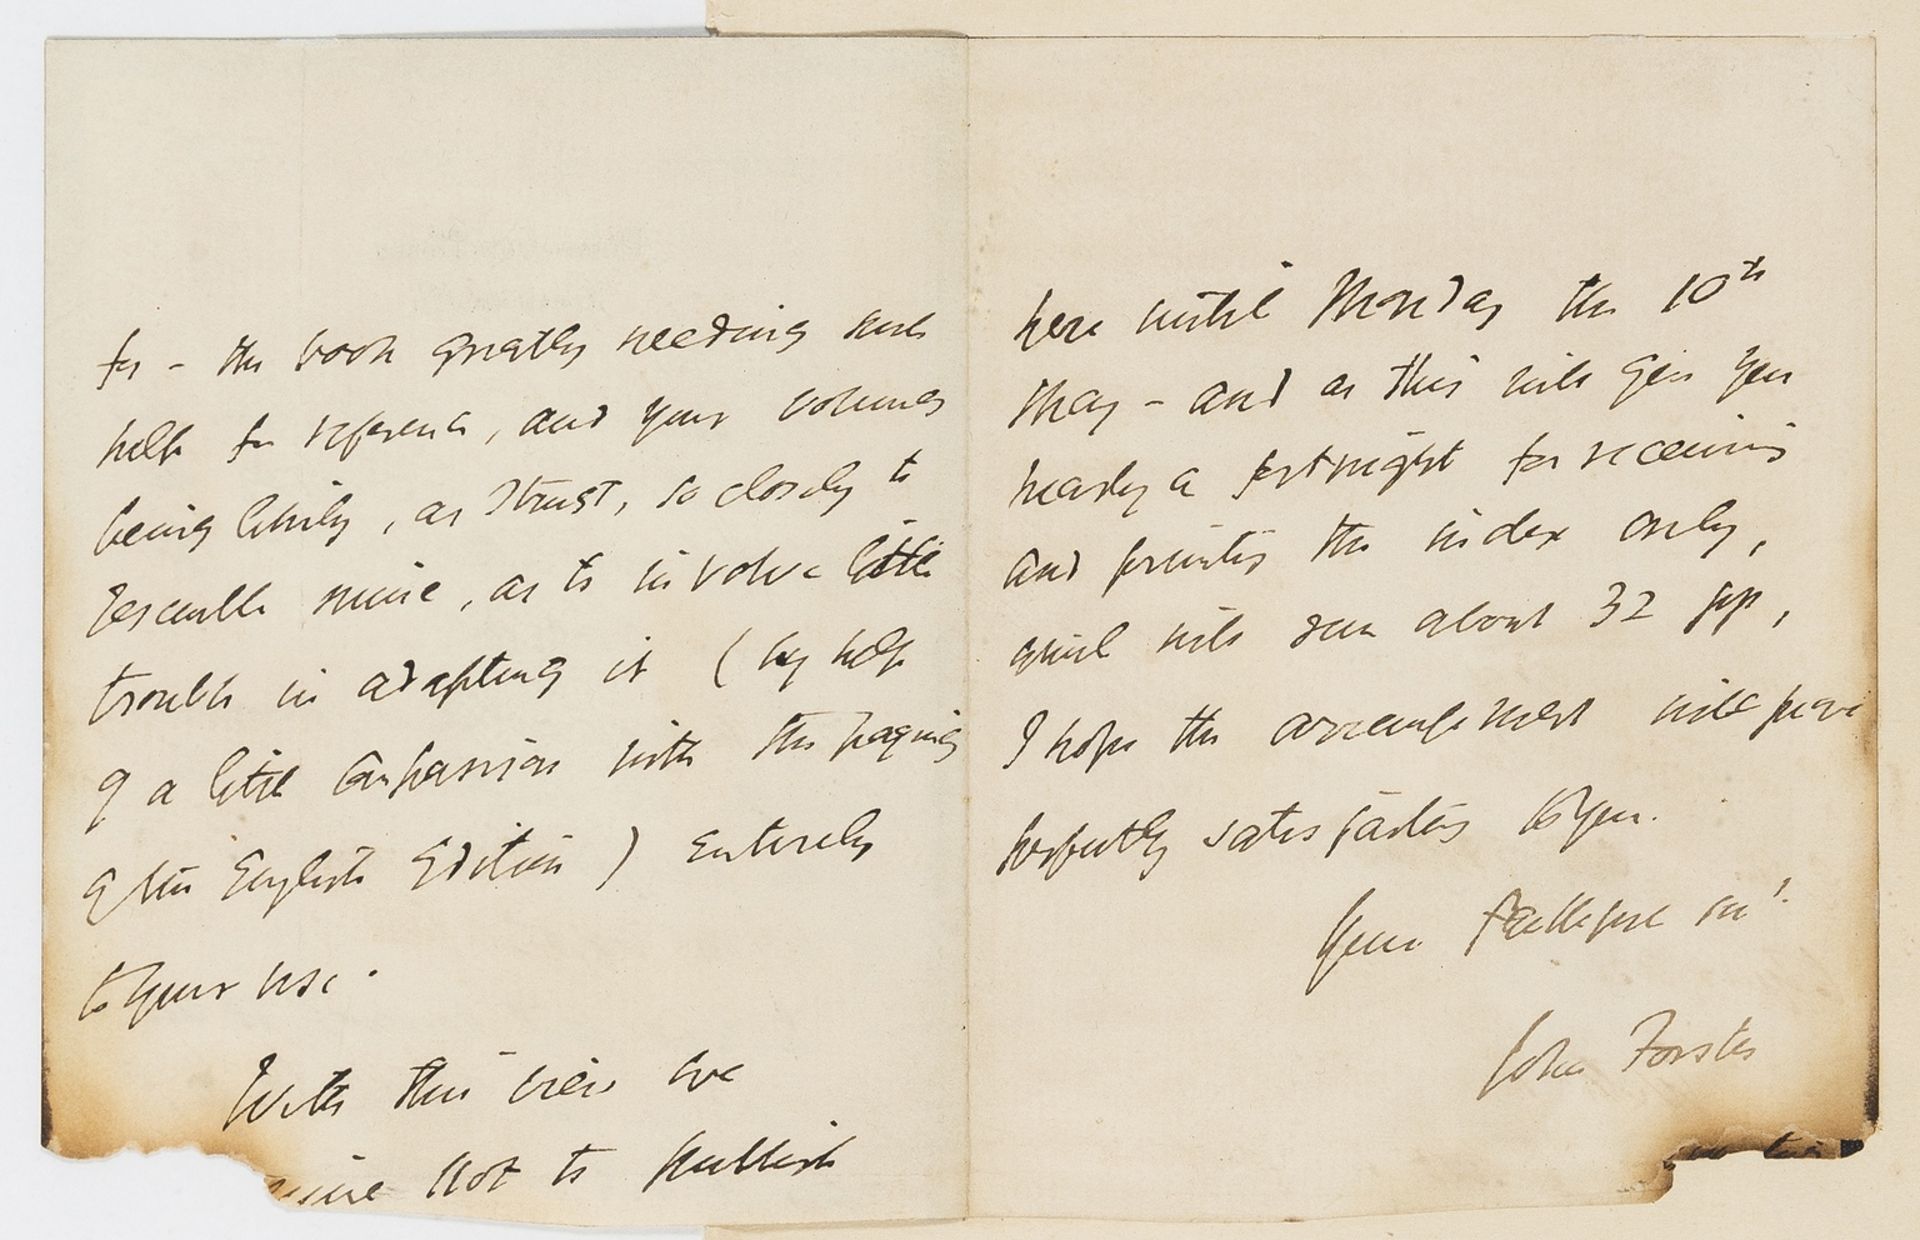 for - the book greatly needing such
help for reference, and your volumes
being likely, as I trust, so closely to
resemble mine, as to involve little
trouble in adapting it (by help
of a little comparison with the paging
of the English Edition) entirely
to your use.
With this view we
not to publish
here until Monday the 10th
May - and as this will give you
nearly a fortnight for receiving
and printing the index only,
which will run about 32 pp,
I hope the arrangement will prove
perfectly satisfactory to you.
Your
John Forster